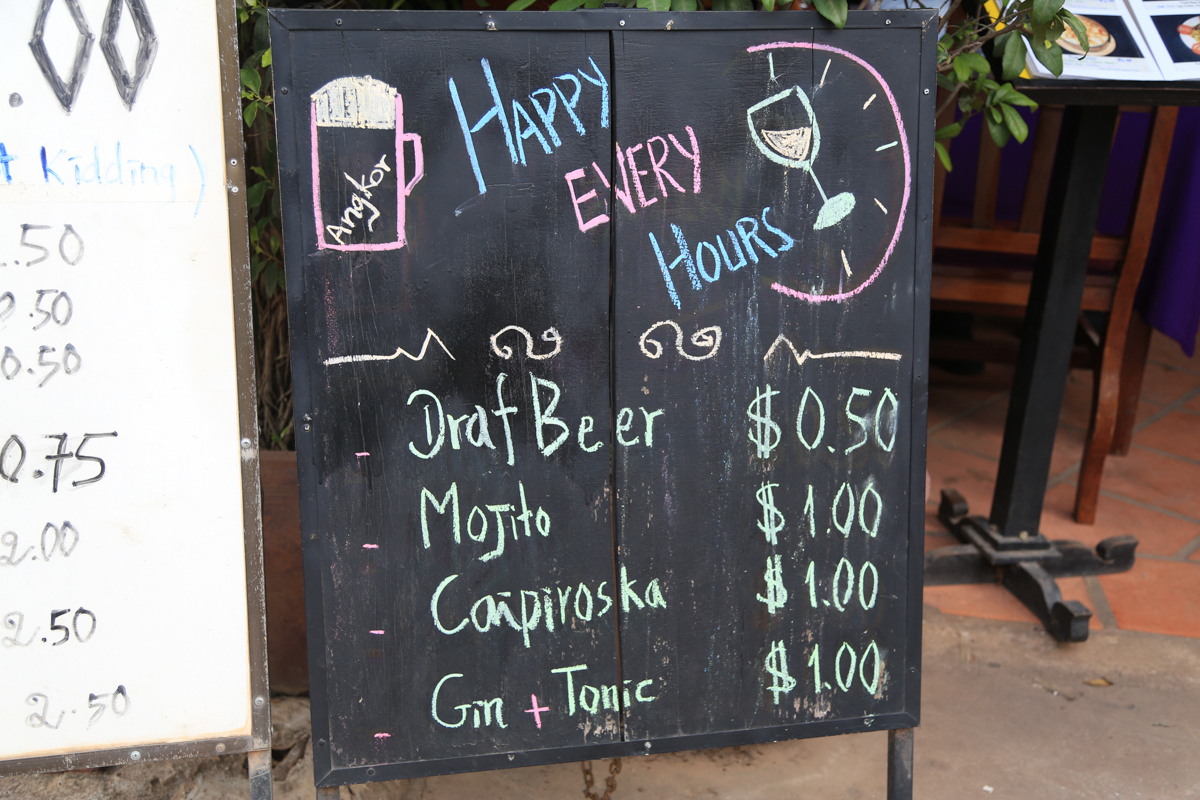 .00
t Kidding)
.50
.50
0.50
0.75
2.00
2.50
2.50
Angkor
HAPPY
EVERY
HOURS
Draf Beer $ 0.50
Mojito $ 1.00
Caipiroska $ 1.00
Gin + Tonic $ 1.00